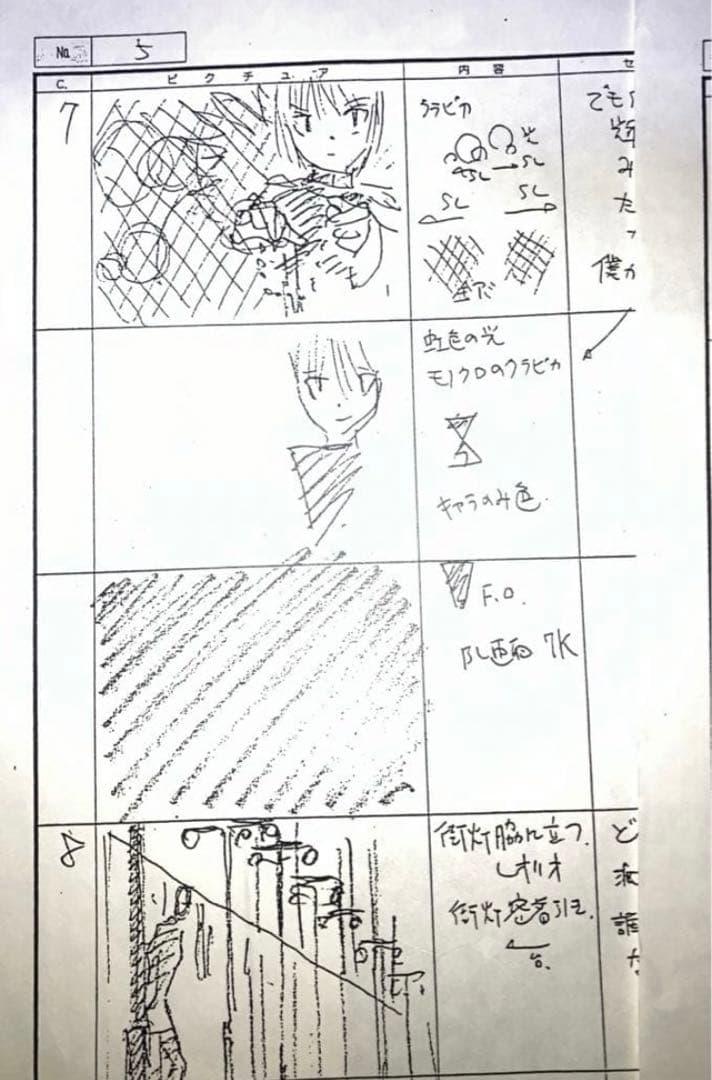 No. 5
C. ピクチュア 内容 セ
7
クラピカ
光
SL SL
SL SL
でも
み
た
僕が
虹色の光
モノクロのクラピカ
キャラのみ色.
F.O.
BL画面 7K
8
街灯脇に立つ.
レオリオ
街灯密着引き.
ど